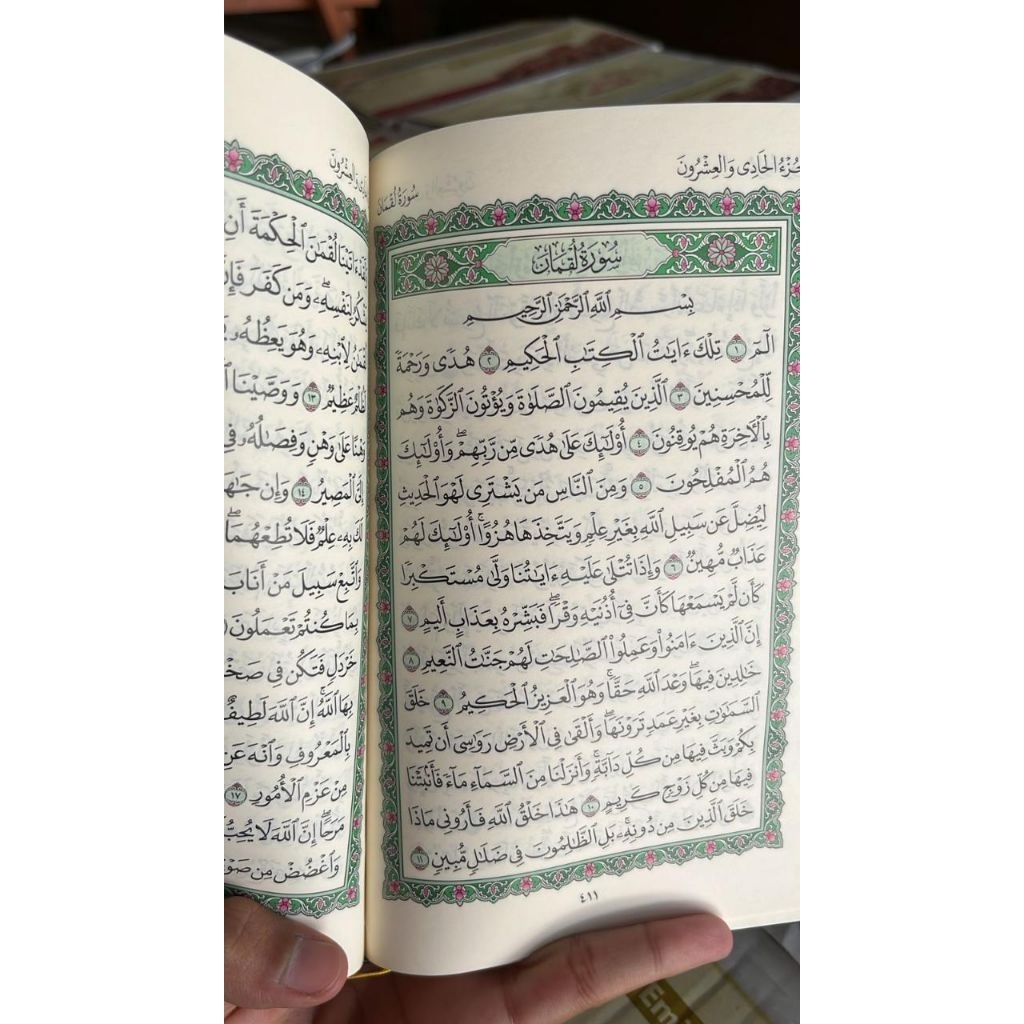 جُزْءُ الْحَادِى وَالْعِشْرُونَ
سُورَةُ لُقْمَانَ
سُورَةُ لُقْمَانَ
بِسْمِ ٱللَّهِ ٱلرَّحْمَٰنِ ٱلرَّحِيمِ
الٓمٓ ١ تِلْكَ ءَايَٰتُ ٱلْكِتَٰبِ ٱلْحَكِيمِ ٢ هُدًى وَرَحْمَةً
لِّلْمُحْسِنِينَ ٣ ٱلَّذِينَ يُقِيمُونَ ٱلصَّلَوٰةَ وَيُؤْتُونَ ٱلزَّكَوٰةَ وَهُم
بِٱلْءَاخِرَةِ هُمْ يُوقِنُونَ ٤ أُو۟لَٰٓئِكَ عَلَىٰ هُدًى مِّن رَّبِّهِمْ ۖ وَأُو۟لَٰٓئِكَ
هُمُ ٱلْمُفْلِحُونَ ٥ وَمِنَ ٱلنَّاسِ مَن يَشْتَرِى لَهْوَ ٱلْحَدِيثِ
لِيُضِلَّ عَن سَبِيلِ ٱللَّهِ بِغَيْرِ عِلْمٍ وَيَتَّخِذَهَا هُزُوًا ۚ أُو۟لَٰٓئِكَ لَهُمْ
عَذَابٌ مُّهِينٌ ٦ وَإِذَا تُتْلَىٰ عَلَيْهِ ءَايَٰتُنَا وَلَّىٰ مُسْتَكْبِرًا
كَأَن لَّمْ يَسْمَعْهَا كَأَنَّ فِىٓ أُذُنَيْهِ وَقْرًا ۖ فَبَشِّرْهُ بِعَذَابٍ أَلِيمٍ ٧
إِنَّ ٱلَّذِينَ ءَامَنُوا۟ وَعَمِلُوا۟ ٱلصَّٰلِحَٰتِ لَهُمْ جَنَّٰتُ ٱلنَّعِيمِ ٨
خَٰلِدِينَ فِيهَا ۖ وَعْدَ ٱللَّهِ حَقًّا ۚ وَهُوَ ٱلْعَزِيزُ ٱلْحَكِيمُ ٩ خَلَقَ
ٱلسَّمَٰوَٰتِ بِغَيْرِ عَمَدٍ تَرَوْنَهَا ۖ وَأَلْقَىٰ فِى ٱلْأَرْضِ رَوَٰسِىَ أَن تَمِيدَ
بِكُمْ وَبَثَّ فِيهَا مِن كُلِّ دَآبَّةٍ ۚ وَأَنزَلْنَا مِنَ ٱلسَّمَآءِ مَآءً فَأَنۢبَتْنَا
فِيهَا مِن كُلِّ زَوْجٍ كَرِيمٍ ١٠ هَٰذَا خَلْقُ ٱللَّهِ فَأَرُونِى مَاذَا
خَلَقَ ٱلَّذِينَ مِن دُونِهِۦ ۚ بَلِ ٱلظَّٰلِمُونَ فِى ضَلَٰلٍ مُّبِينٍ ١١
٤١١
وَٱلْعِشْرُونَ
ءَاتَيْنَا لُقْمَٰنَ ٱلْحِكْمَةَ أَنِ
لِنَفْسِهِۦ ۖ وَمَن كَفَرَ فَإِنَّ
لِٱبْنِهِۦ وَهُوَ يَعِظُهُۥ
عَظِيمٌ ١٣ وَوَصَّيْنَا
عَلَىٰ وَهْنٍ وَفِصَٰلُهُۥ فِى
ٱلْمَصِيرُ ١٤ وَإِن
بِهِۦ عِلْمٌ فَلَا تُطِعْهُمَا ۖ
وَٱتَّبِعْ سَبِيلَ مَنْ أَنَابَ
بِمَا كُنتُمْ تَعْمَلُونَ
خَرْدَلٍ فَتَكُن فِى
بِهَا ٱللَّهُ ۚ إِنَّ ٱللَّهَ لَطِيفٌ
بِٱلْمَعْرُوفِ وَٱنْهَ عَنِ
مِنْ عَزْمِ ٱلْأُمُورِ ١٧
مَرَحًا ۖ إِنَّ ٱللَّهَ لَا يُحِبُّ
وَٱغْضُضْ مِن